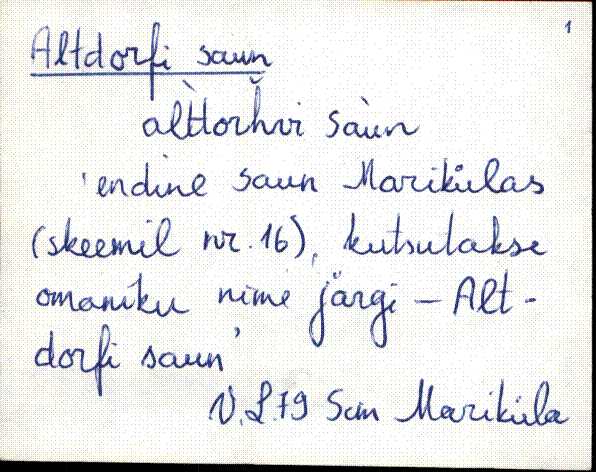 1
Altdorfi saun
al̀ttorhvi sàun
'endine saun Mariküla​s
(skeemil nr. 16), kutsutakse
omaniku nime järgi – Alt-
dorfi saun'
V.L.79 Sim Mariküla